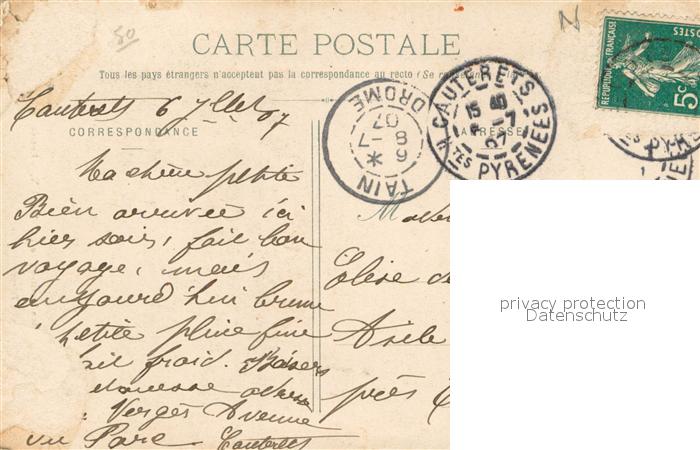 80
N
CARTE POSTALE
Tous les pays étrangers n'acceptent pas la correspondance au recto (Se
RÉPUBLIQUE FRANÇAISE
POSTES
5c
CAUTERETS
15 40
6 -7
07
Htes PYRENÉES
TAIN
DROME
6
8 -7
07
*
Cauterets 6 Jllet 07
CORRESPONDANCE
ADRESSE
tes PYR
Ma chère petite
Bien arrivée ici
hier soir, fait bon
voyage, mais
aujourd'hui brume
petite pluie fine
fait froid. Baisers
adresse
Verges Avenue
du Parc Cauterets
M
Elise de
Asile
près
privacy protection
Datenschutz